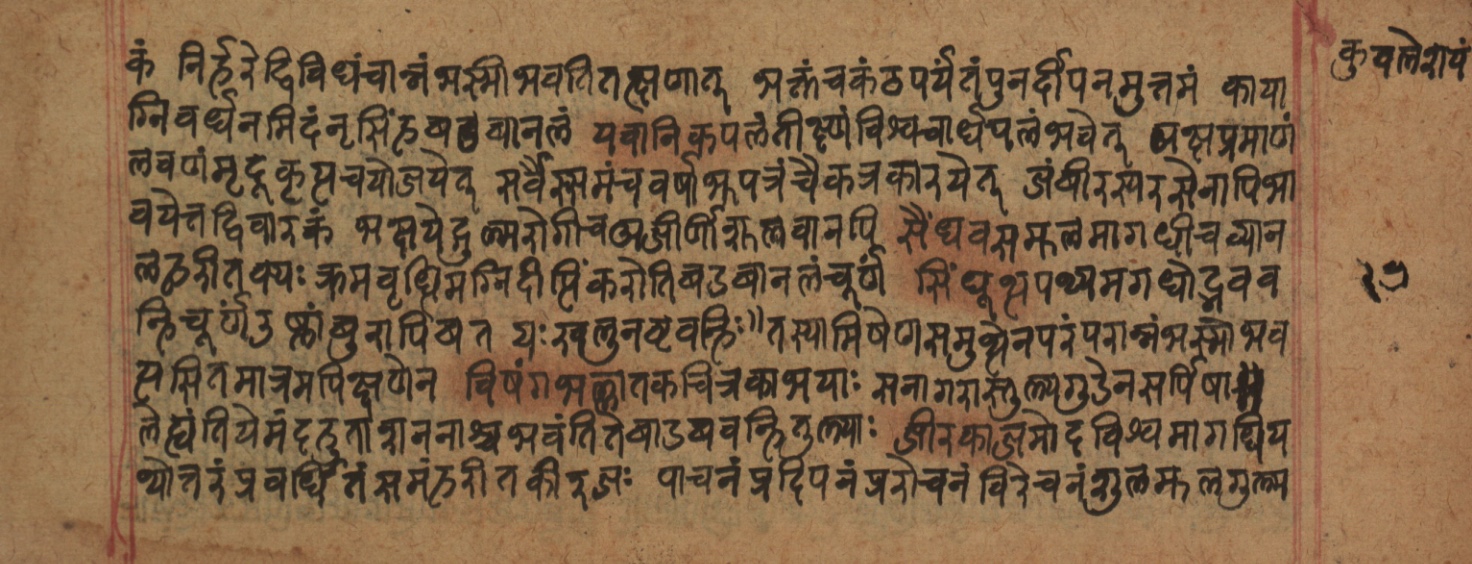 कं निर्हरेद्विविधंचान्नंभस्मीभवतितत्क्षणात् भक्तंचकंठपर्यंतंपुनर्दीपनमुत्तमं काया
ग्निवर्धनमिदंनृसिंहवडवानलं यवानिकपलंतीक्ष्णंविश्वचार्धपलंभवेत् अक्षप्रमाणं
लवणंमृदूकृत्यचयोजयेत् सर्वैस्समंचवर्षाभूपत्रंचैकत्रकारयेत् जंबीरस्परसेनापिभा
वयेत्तद्दिवारकं भक्षयेद्गुल्मरोगीचअजीर्णीशूलवानपि सैंधवसमूलमागधीचव्यान
लहरीतक्यः क्रमवृध्धिमग्निदीप्तिंकरोतिवडवानलंचूर्ण सिंधूत्थपथ्यमगधोद्भवव
न्हिचूर्णउष्णांबुनापिबत यःखलुनष्टवन्हिः॥तस्यामिषेणसमुध्धेनपरंपरान्नंभस्मीभव
त्यसितमात्रमपिक्षणेन विषंगभल्लातकचित्रकाभयाः सनागरास्तुल्यगुडेनसर्पिषा॥
लेह्यंतियेमंदहुताशननाश्चभवंतितेबाडबवन्हितुल्याः जीरकाजमोदविश्वमागधिप
थ्योत्तरंप्रवर्धितंसमंहरीतकीरजः पाचनंप्रदिपनंप्ररोचनंविरेचनंशुलमूलगुल्म
कुवलेशयं
१७